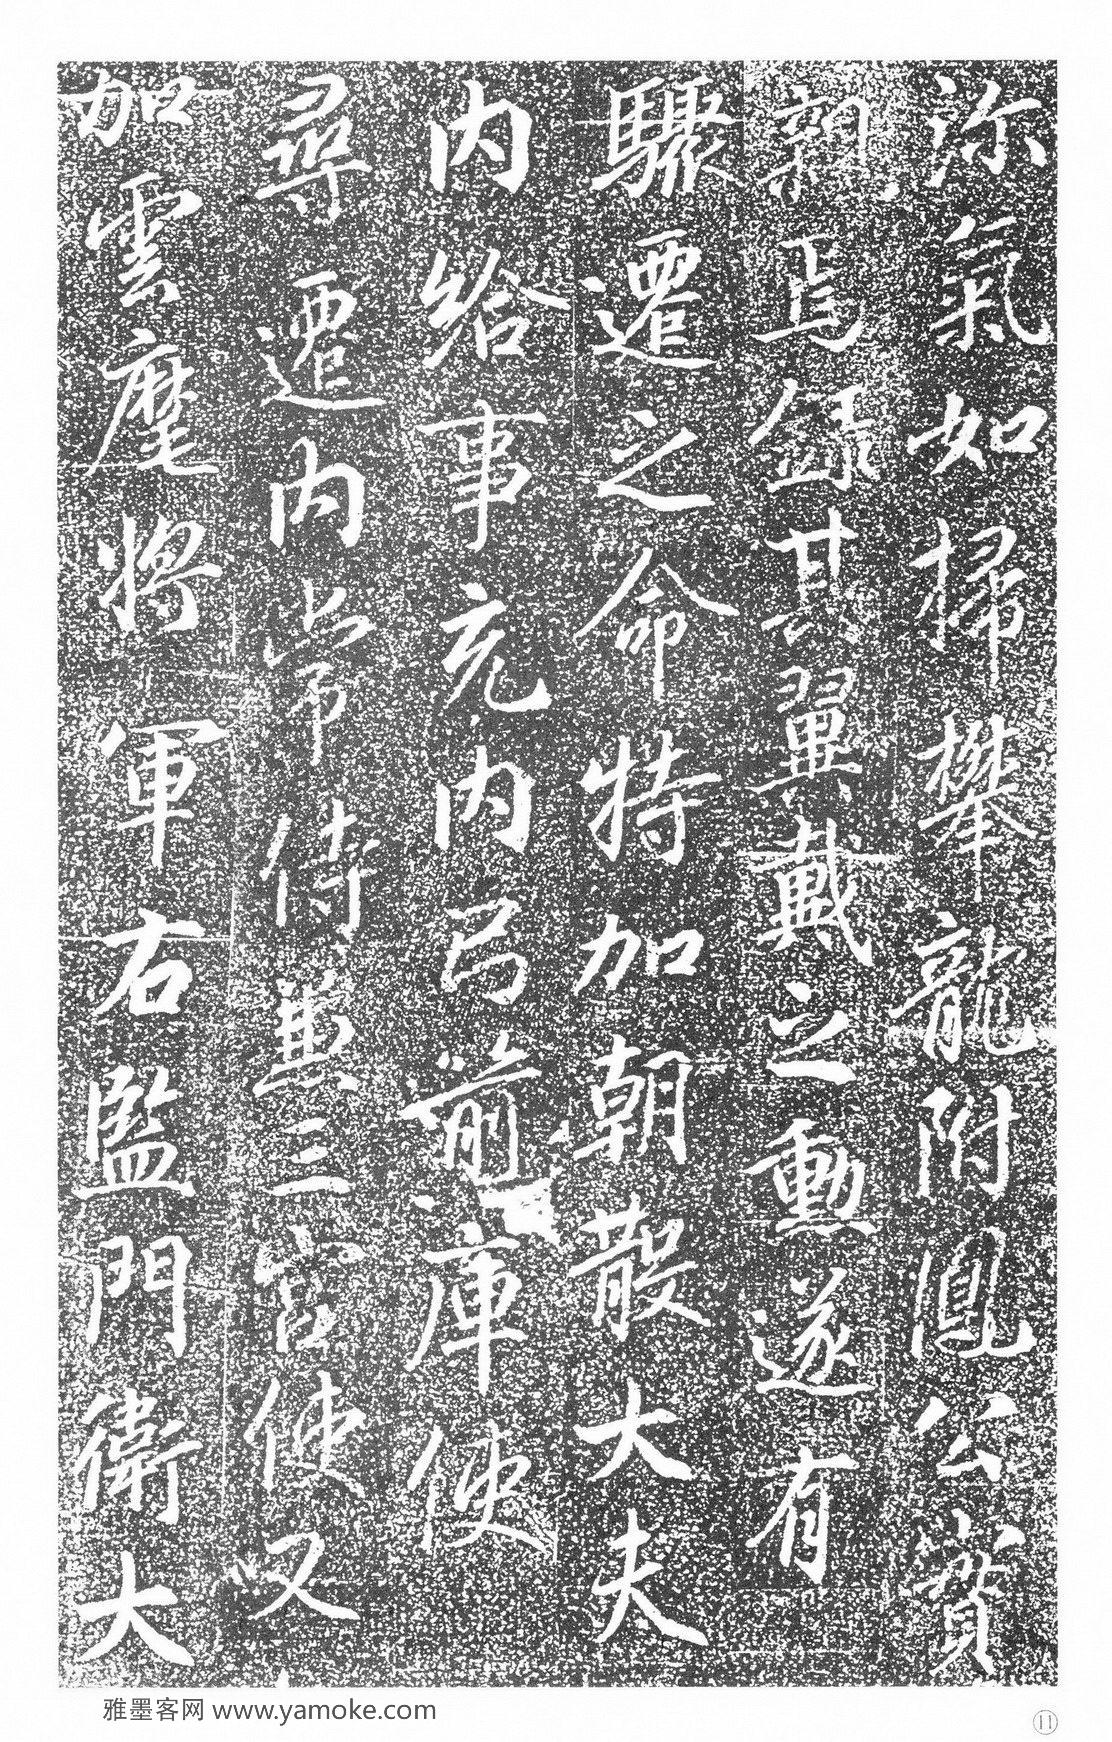 沴氣如掃攀龍附鳳公實
親焉録其翼戴之勳遂有
驟遷之命特加朝散大夫
内給事充内弓箭庫使
尋遷内常侍兼三宫使又
加雲麾將軍右監門衛大
雅墨客网 www.yamoke.com
11